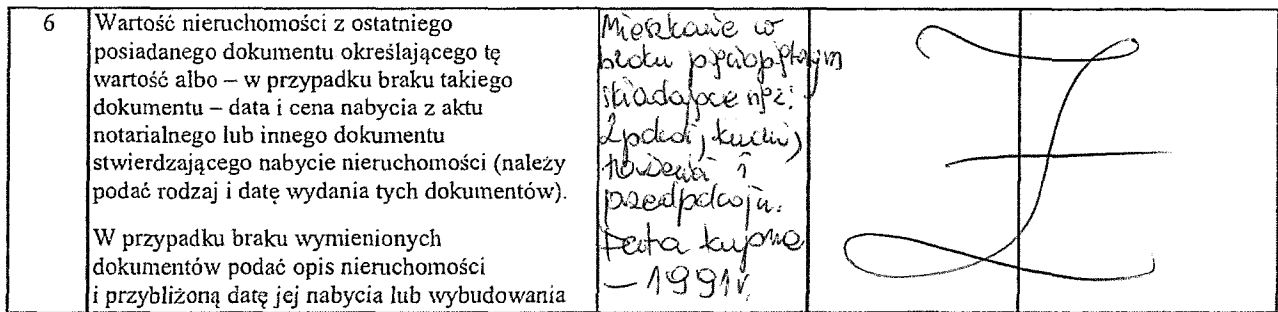 6
Wartość nieruchomości z ostatniego
posiadanego dokumentu określającego tę
wartość albo – w przypadku braku takiego
dokumentu – data i cena nabycia z aktu
notarialnego lub innego dokumentu
stwierdzającego nabycie nieruchomości (należy
podać rodzaj i datę wydania tych dokumentów).
W przypadku braku wymienionych
dokumentów podać opis nieruchomości
i przybliżoną datę jej nabycia lub wybudowania
Mieszkanie w
bloku
składające się z:
2 pokoi, kuchni,
łazienki i
przedpokoju.
Data kupna
– 1991r.